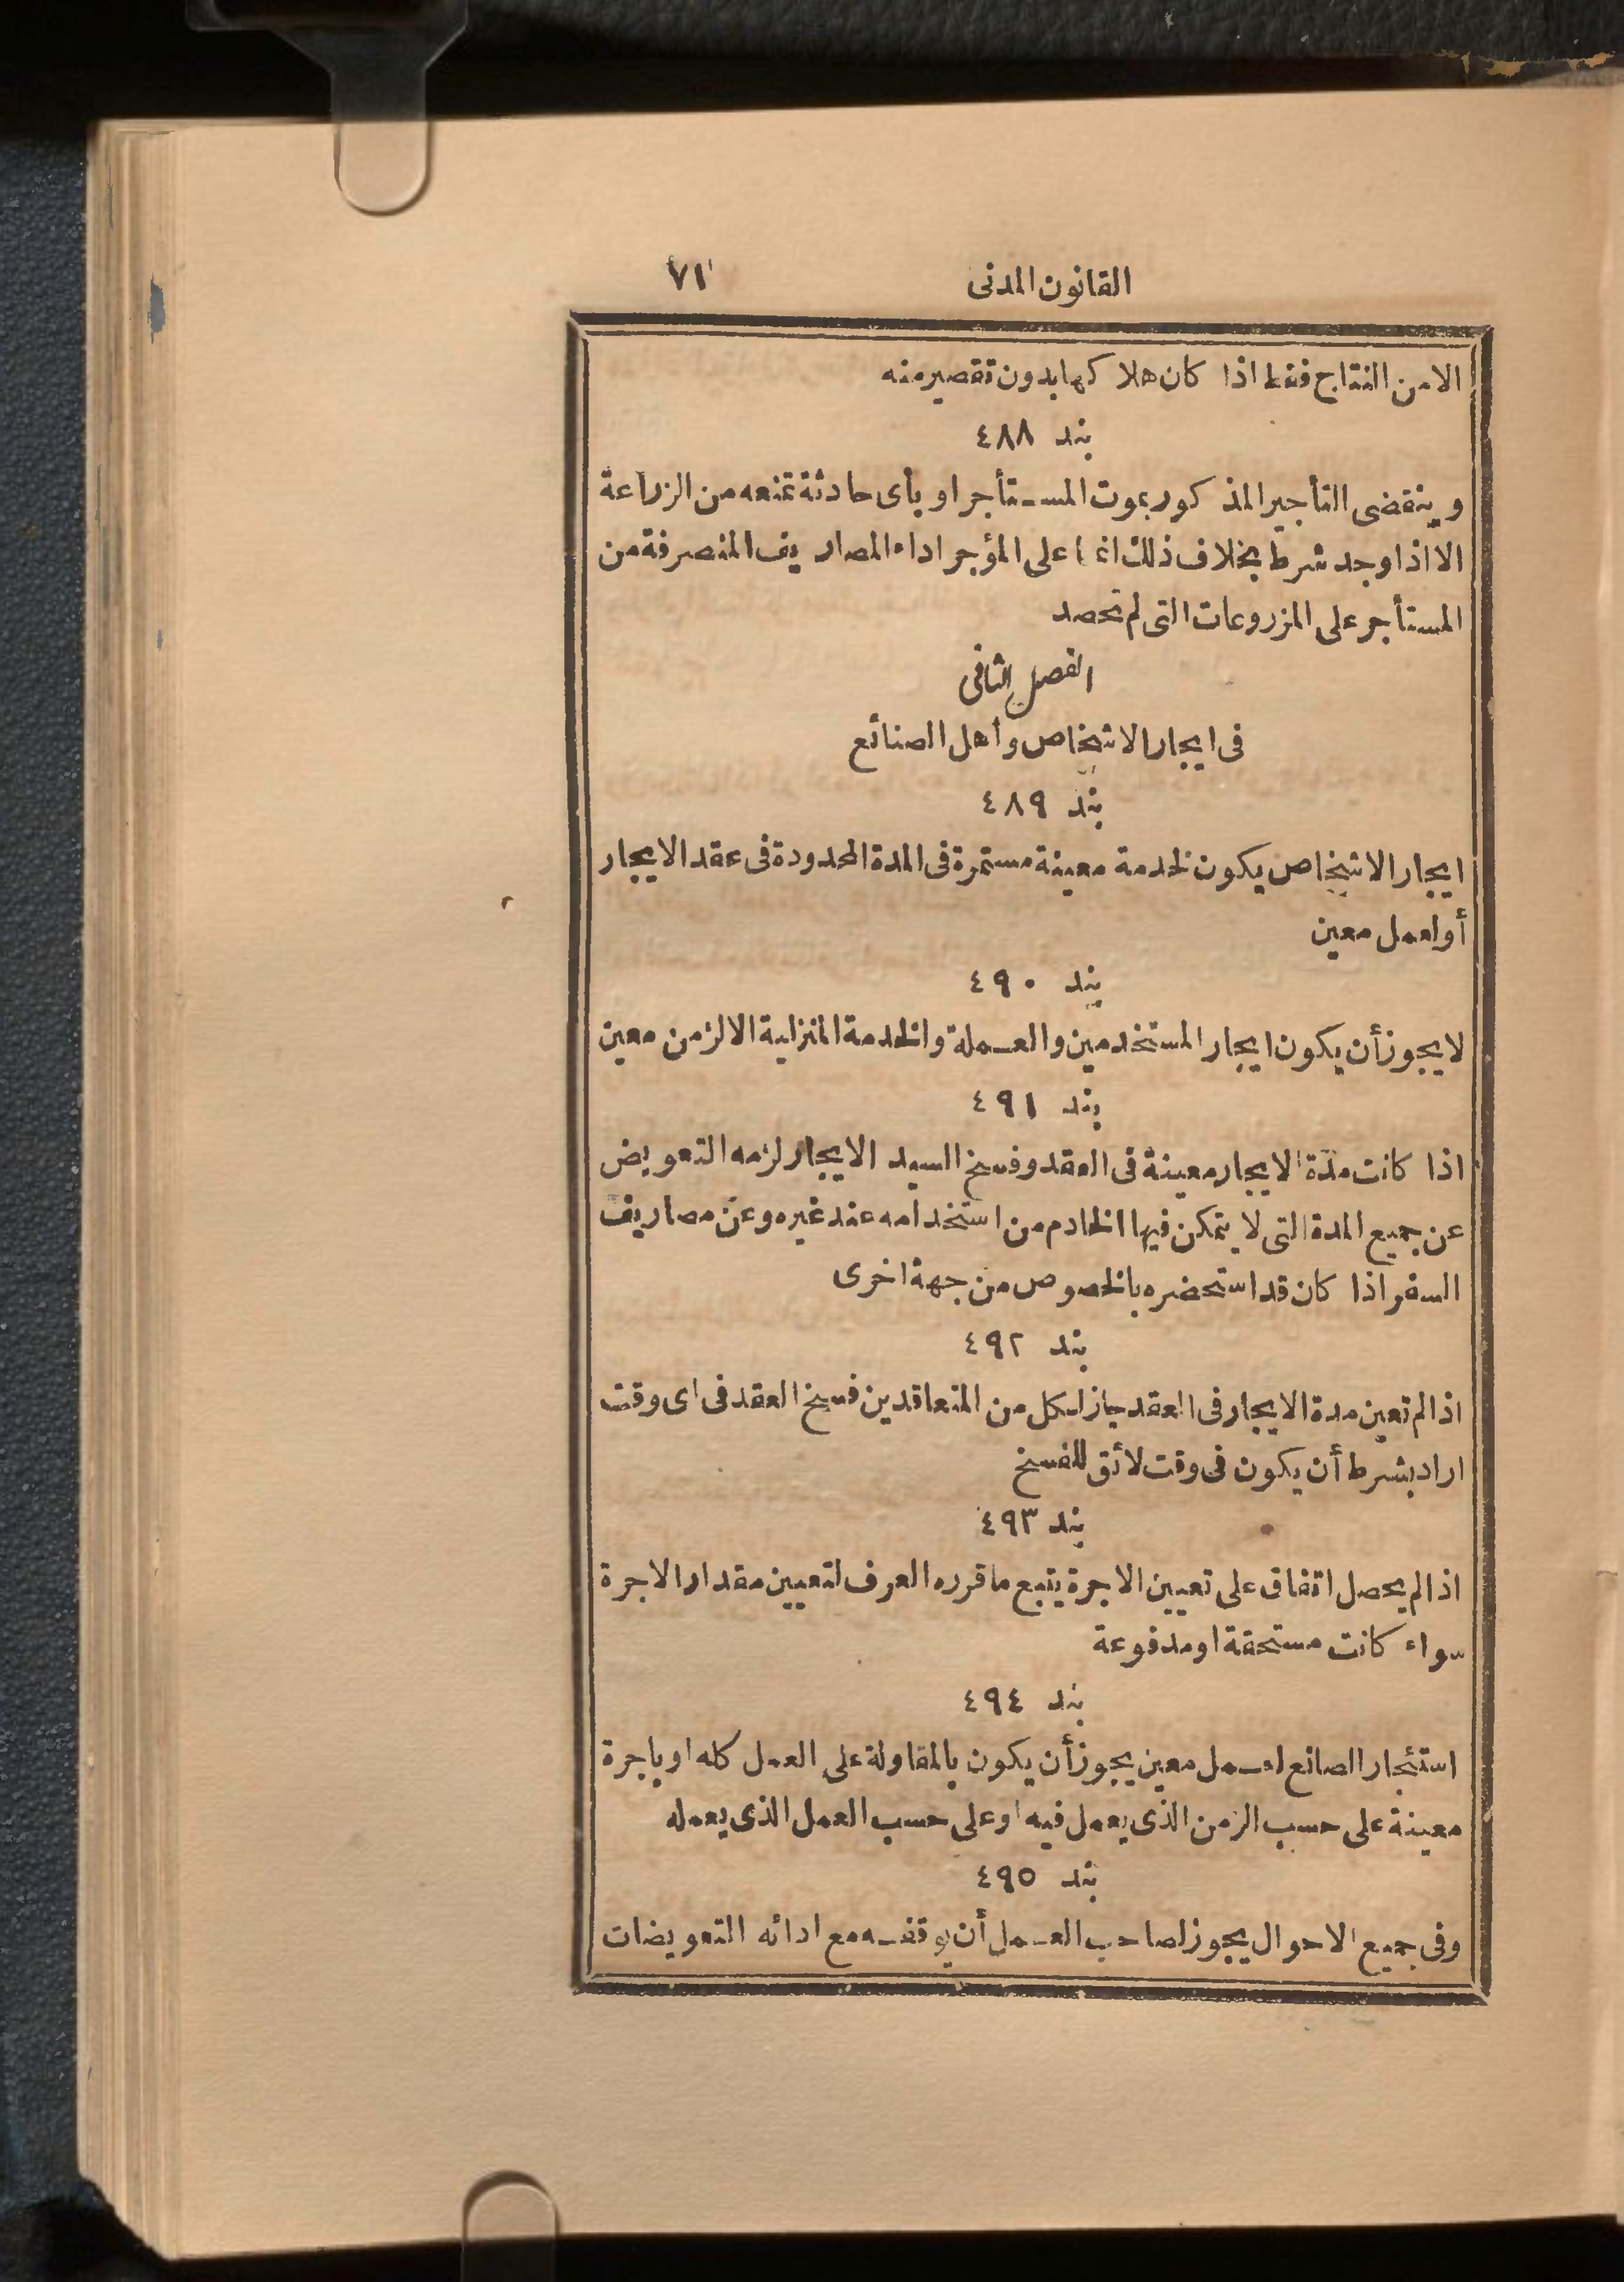 القانون المدنى ٧١
الا من النتاج فقط اذا كان هلاكها بدون تقصير منه
بند ٤٨٨
وينقضى التأجير المذكور بموت المستأجر او بأى حادثة تمنعه من الزراعة
الا اذا وجد شرط بخلاف ذلك انما على المؤجر اداء المصاريف المنصرفة من
المستأجر على المزروعات التى لم تحصد
الفصل الثانى
فى ايجار الاشخاص وأهل الصنائع
بند ٤٨٩
ايجار الاشخاص يكون لخدمة معينة مستمرة فى المدة المحدودة فى عقد الايجار
أو لعمل معين
بند ٤٩٠
لا يجوز أن يكون ايجار المستخدمين والعملة والخدمة المنزلية الا لزمن معين
بند ٤٩١
اذا كانت مدّة الايجار معينة فى العقد وفسخ السيد الايجار لزمه التعويض
عن جميع المدة التى لا يتمكن فيها الخادم من استخدامه عند غيره وعن مصاريف
السفر اذا كان قد استحضره بالخصوص من جهة اخرى
بند ٤٩٢
اذا لم تعين مدة الايجار فى العقد جاز لكل من المتعاقدين فسخ العقد فى اى وقت
اراد بشرط أن يكون فى وقت لائق للفسخ
بند ٤٩٣
اذا لم يحصل اتفاق على تعيين الاجرة يتبع ما قرره العرف لتعيين مقدار الاجرة
سواء كانت مستحقة او مدفوعة
بند ٤٩٤
استئجار الصانع لعمل معين يجوز أن يكون بالمقاولة على العمل كله او باجرة
معينة على حسب الزمن الذى يعمل فيه او على حسب العمل الذى يعمله
بند ٤٩٥
وفى جميع الاحوال يجوز لصاحب العمل أن يوقفه مع ادائه التعويضات